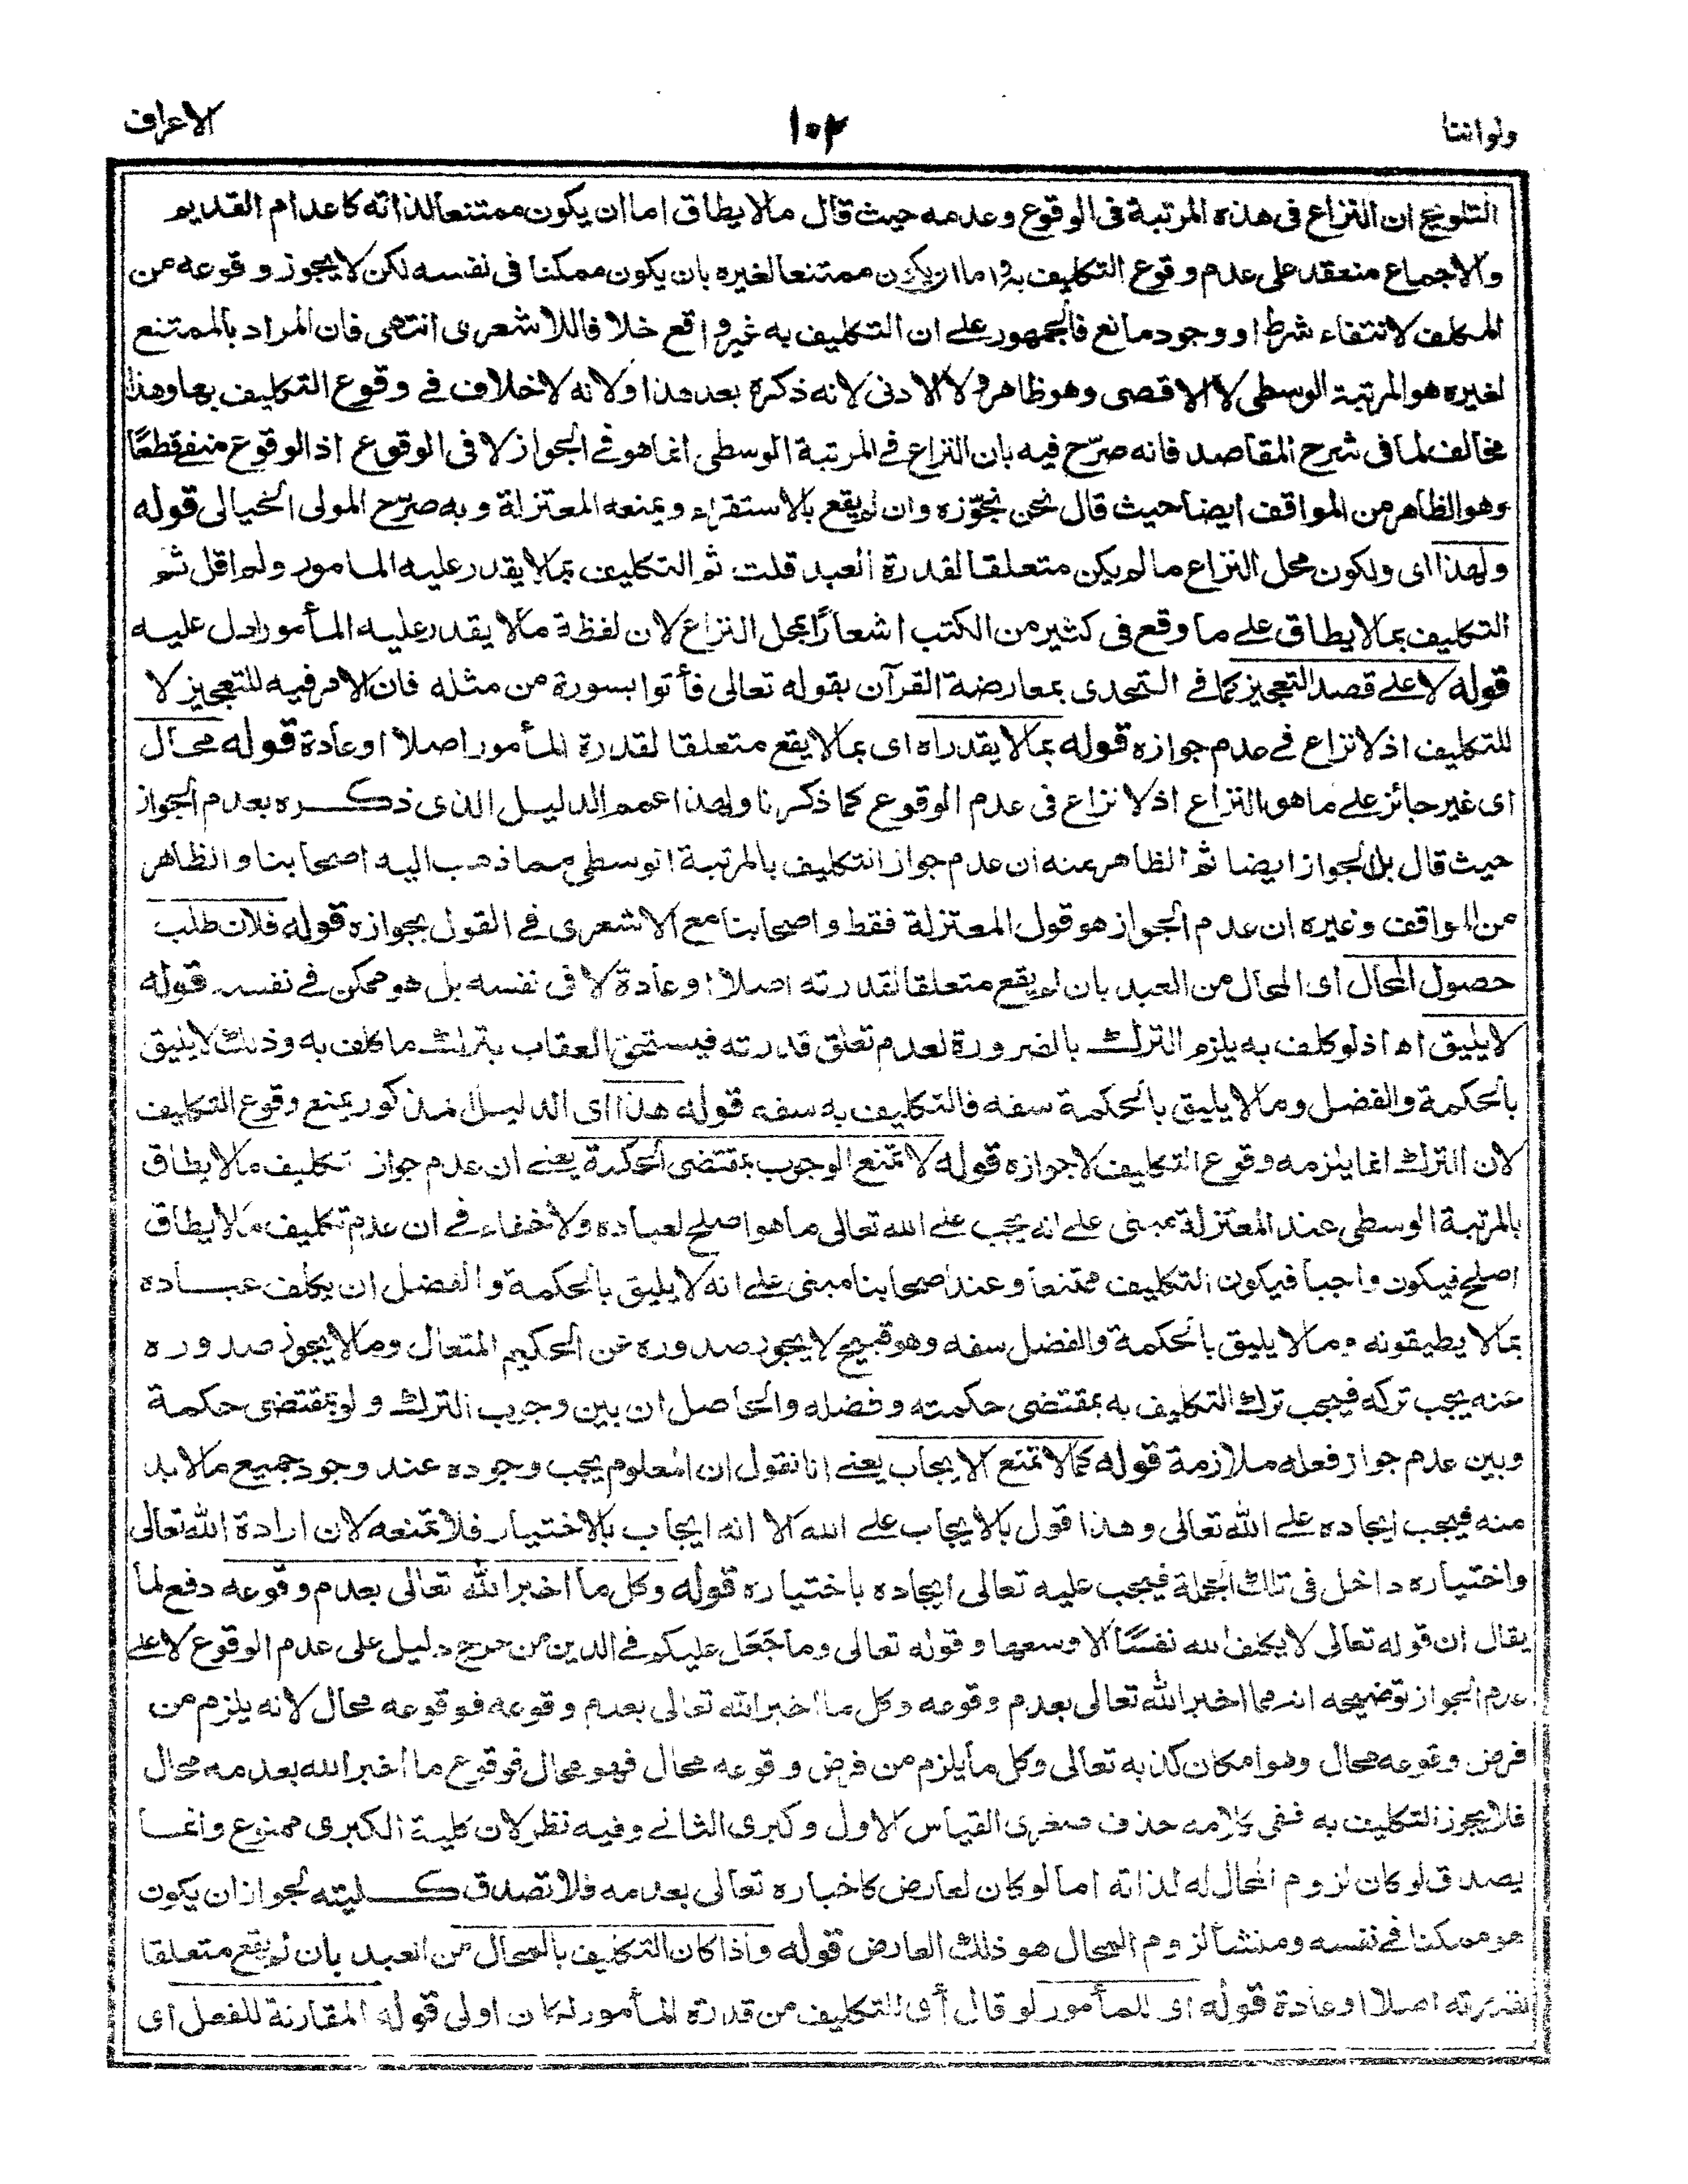 ولواننا ١٠٢ الاعراف
التلويح ان النزاع فى هذه المرتبة فى الوقوع وعدمه حيث قال مالا يطاق اما ان يكون ممتنعا لذاته كاعدام القديم
والاجماع منعقد على عدم وقوع التكليف به واما ان يكون ممتنعا لغيره بان يكون ممكنا فى نفسه لكن لا يجوز وقوعه عن
المكلف لانتفاء شرط او وجود مانع فالجمهور على ان التكليف به غير واقع خلافا للاشعرى انتهى فان المراد بالممتنع
لغيره هو المرتبة الوسطى لا الاقصى وهو ظاهر ولا الادنى لانه ذكره بعد هذا ولانه لا خلاف فى وقوع التكليف بها وهذا
مخالف لما فى شرح المقاصد فانه صرّح فيه بان النزاع فى المرتبة الوسطى انما هو فى الجواز لا فى الوقوع اذ الوقوع منفى قطعًا
وهو الظاهر من المواقف ايضا حيث قال نحن نجوّزه وان لم يقع بالاستقراء ويمنعه المعتزلة وبه صرّح المولى الخيالى قوله
ولهذا اى ولكون محل النزاع مالم يكن متعلقا لقدرة العبد قلت ثم التكليف بما لا يقدر عليه المامور ولم اقل ثم
التكليف بما لا يطاق على ما وقع فى كثير من الكتب اشعارًا بمحل النزاع لان لفظة مالا يقدر عليه المأمور ادل عليه
قوله لا على قصد التعجيز كما فى التحدى بمعارضة القرآن بقوله تعالى فأتوا بسورة من مثله فان الامر فيه للتعجيز لا
للتكليف اذ لا نزاع فى عدم جوازه قوله بما لا يقدر اه اى بما لا يقع متعلقا لقدرة المأمور اصلا او عادة قوله محال
اى غير جائز على ما هو النزاع اذ لا نزاع فى عدم الوقوع كما ذكرنا ولهذا عمم الدليل الذى ذكره بعدم الجواز
حيث قال بل الجواز ايضا ثم الظاهر منه ان عدم جواز التكليف بالمرتبة الوسطى مما ذهب اليه اصحابنا والظاهر
من المواقف وغيره ان عدم الجواز هو قول المعتزلة فقط واصحابنا مع الاشعرى فى القول بجوازه قوله فلان طلب
حصول المحال اى المحال من العبد بان لم يقع متعلقا لقدرته اصلا او عادة لا فى نفسه بل هو ممكن فى نفسه قوله
لا يليق اه اذ لو كلف به يلزم الترك بالضرورة لعدم تعلق قدرته فيستحق العقاب بترك ما كلف به وذلك لا يليق
بالحكمة والفضل ومالا يليق بالحكمة سفه فالتكليف به سفه قوله هذا اى الدليل المذكور يمنع وقوع التكليف
لان الترك انما يلزمه وقوع التكليف لا جوازه قوله لا تمنع الوجوب بمقتضى الحكمة يعنى ان عدم جواز تكليف مالا يطاق
بالمرتبة الوسطى عند المعتزلة مبنى على انه يجب على الله تعالى ما هو اصلح لعباده ولا خفاء فى ان عدم تكليف مالا يطاق
اصلح فيكون واجبا فيكون التكليف ممتنعا وعند اصحابنا مبنى على انه لا يليق بالحكمة والفضل ان يكلف عباده
بما لا يطيقونه ومالا يليق بالحكمة والفضل سفه وهو قبيح لا يجوز صدوره عن الحكيم المتعال ومالا يجوز صدوره
عنه يجب تركه فيجب ترك التكليف به بمقتضى حكمته وفضله والحاصل ان بين وجوب الترك ولو بمقتضى حكمة
وبين عدم جواز فعله ملازمة قوله كما لا تمنع الايجاب يعنى انا نقول ان المعلوم يجب وجوده عند وجود جميع مالا بد
منه فيجب ايجاده على الله تعالى وهذا قول بالايجاب على الله الا انه ايجاب بالاختيار فلا تمنعه لان ارادة الله تعالى
واختياره داخل فى تلك الجملة فيجب عليه تعالى ايجاده باختياره قوله وكل ما اخبر الله تعالى بعدم وقوعه دفع لما
يقال ان قوله تعالى لا يكلف الله نفسًا الا وسعها وقوله تعالى وما جَعَل عليكم فى الدين من حرج دليل على عدم الوقوع لا على
عدم الجواز توضيحه انه مما اخبر الله تعالى بعدم وقوعه وكل ما اخبر الله تعالى بعدم وقوعه فوقوعه محال لانه يلزم من
فرض وقوعه محال وهو امكان كذبه تعالى وكل ما يلزم من فرض وقوعه محال فهو محال فوقوع ما اخبر الله بعدمه محال
فلا يجوز التكليف به ففى كلامه حذف صغرى القياس الاول وكبرى الثانى وفيه نظر لان كلية الكبرى ممنوع وانما
يصدق لو كان لزوم المحال له لذاته اما لو كان لعارض كاخباره تعالى بعدمه فلا تصدق كليته لجواز ان يكون
هو ممكنا فى نفسه ومنشأ لزوم المحال هو ذلك العارض قوله واذا كان التكليف بالمحال من العبد بان لم يقع متعلقا
لقدرته اصلا او عادة قوله اى للمأمور لو قال أى للتكليف من قدرة المأمور لكان اولى قوله المقارنة للفعل اى